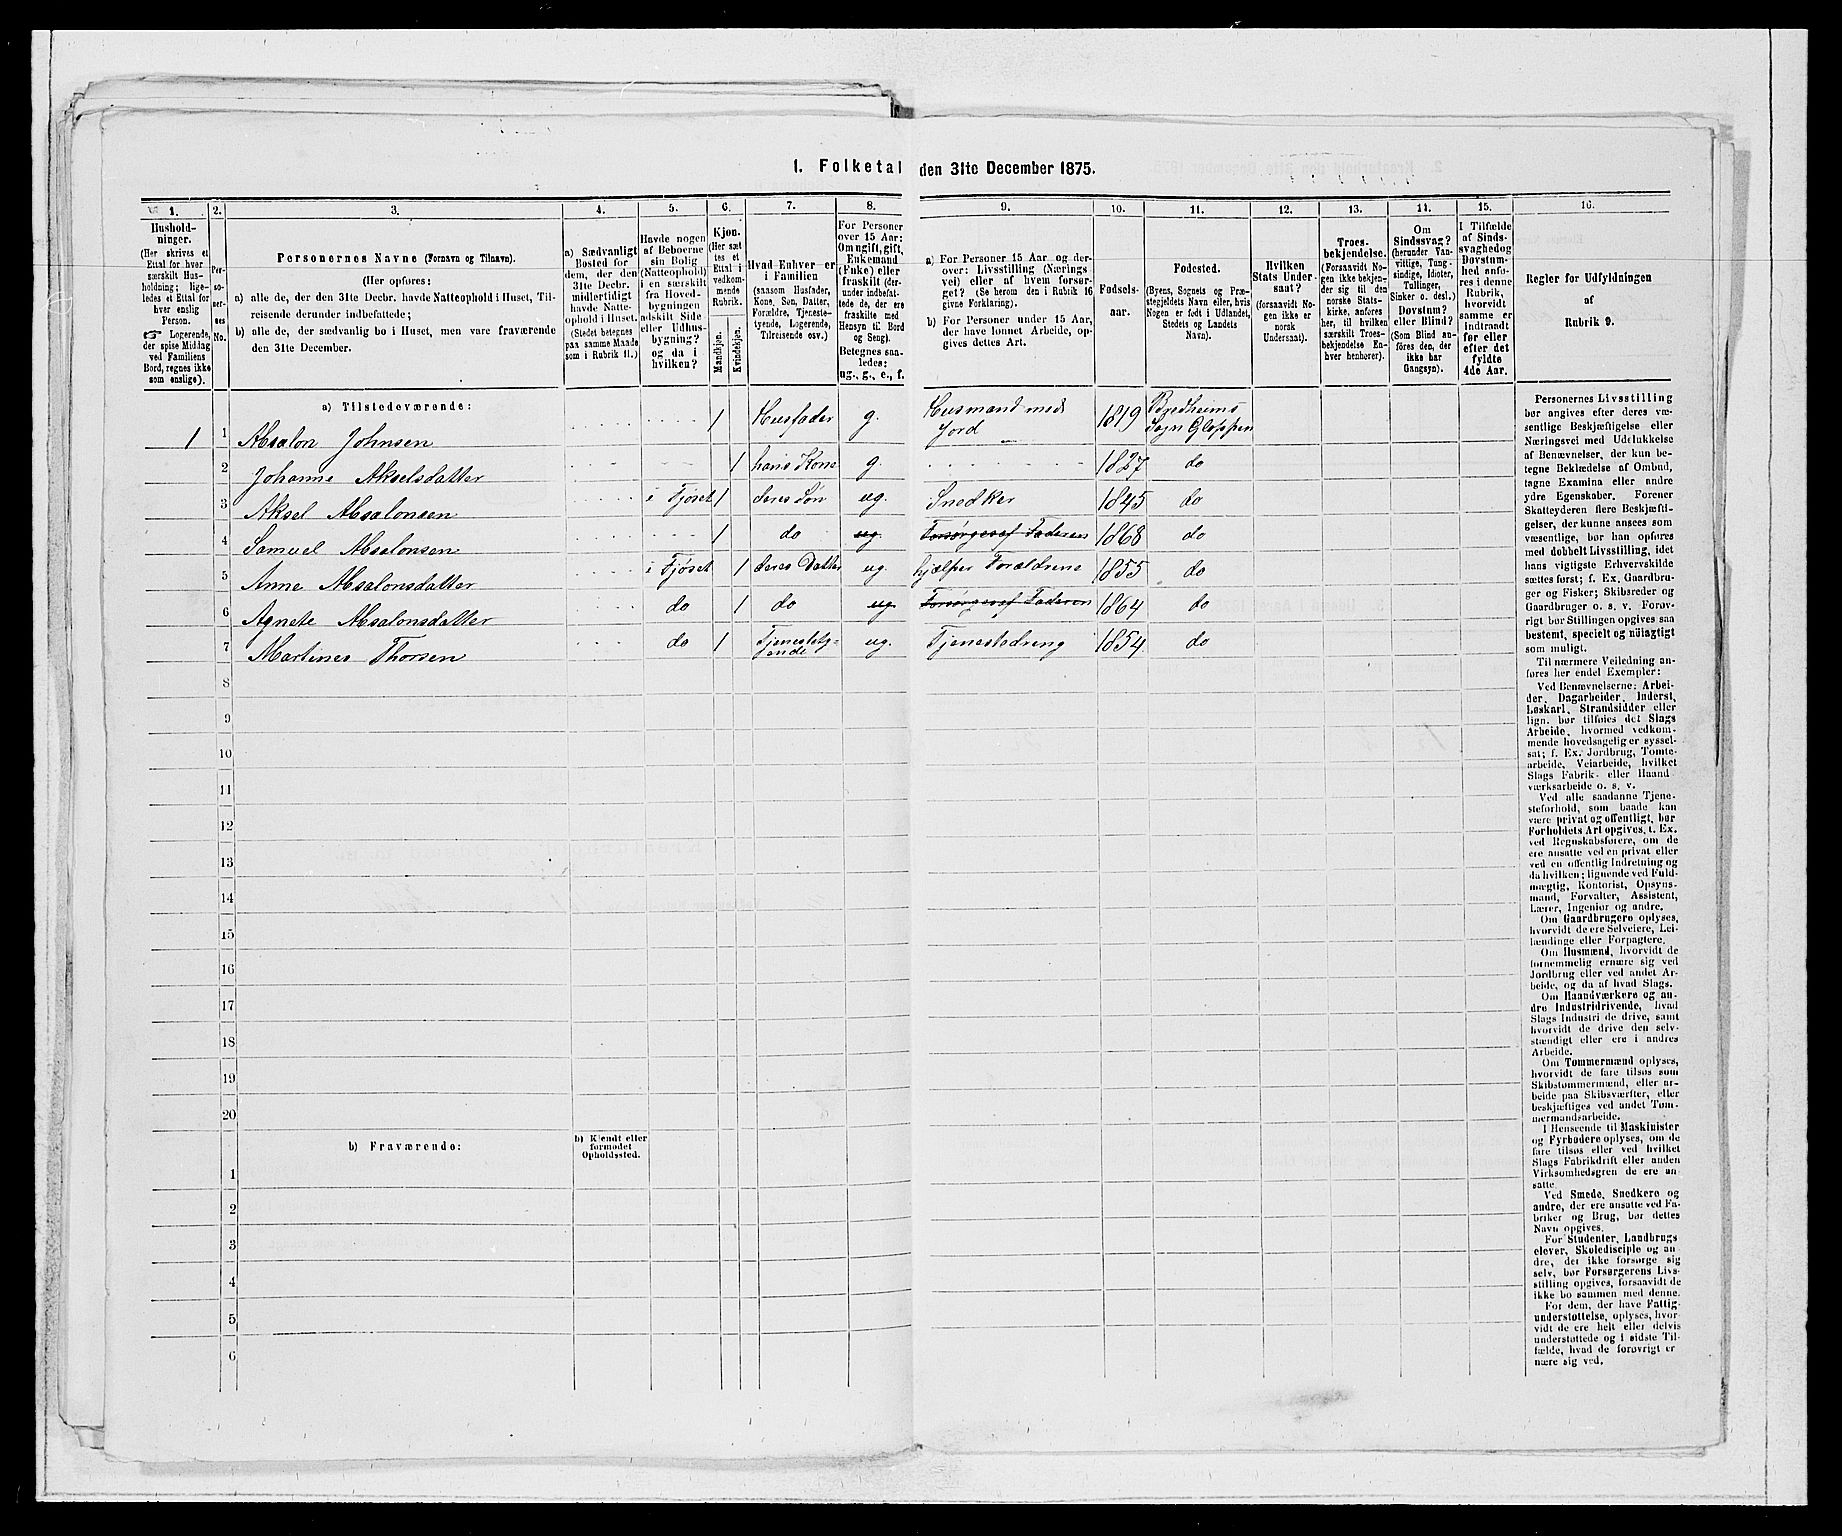 1. Folketal den 31te December 1875.
1. 2. 3. 4. 5. 6. 7. 8. 9. 10. 11. 12. 13. 14. 15. 16.
Hushold-
ninger.
(Her skrives et
Ettal for hver
særskilt Hus-
holdning; lige-
ledes et Ettal for
hver enslig
Person.
Logerende,
der spise Middag
ved Familiens
Bord, regnes ikke
som enslige).
Per-
so-
ner-
nes
No.
Personernes Navne (Fornavn og Tilnavn).
(Her opføres:
a) alle de, der den 31te Decbr. havde Natteophold i Huset, Til-
reisende derunder indbefattede;
b) alle de, der sædvanlig bo i Huset, men vare fraværende
den 31te December.
a) Sædvanligt
Bosted for
dem, der den
31te Decbr.
midlertidigt
havde Natte-
ophold i Huset.
(Stedet betegnes
paa samme Maade
som i Rubrik 11.)
Havde nogen
af Beboerne
sin Bolig
(Natteophold)
i en særskilt
fra Hoved-
bygningen
adskilt Side
eller Udhus-
bygning?
og da i
hvilken?
Kjøn.
(Her sæt-
tes et
Ettal i
vedkom-
mende
Rubrik.
Mandkjøn.
Kvindekjøn.
Hvad Enhver er
i Familien
(saasom Husfader,
Kone, Søn, Datter,
Forældre, Tjeneste-
tyende, Logerende,
Tilreisende osv.)
For Personer
over 15 Aar:
Om ugift, gift,
Enkemand
(Enke) eller
fraskilt (der-
under indbefat-
tede de, der ere
fraskilte med
Hensyn til Bord
og Seng).
Betegnes saa-
ledes:
ug., g., e., f.
a) For Personer 15 Aar og der-
over: Livsstilling (Nærings
vei) eller af hvem forsør-
get? (Se herom den i Rubrik 16
givne Forklaring).
b) For Personer under 15 Aar,
der have lønnet Arbeide, op-
gives dettes Art.
Fødsels-
aar.
Fødested.
(Byens, Sognets og Præ-
stegjeldets Navn eller, hvis
Nogen er født i Udlandet,
Stedets og Landets
Navn).
Hvilken
Stats Under-
saat?
(forsaavidt No-
gen ikke er
norsk
Undersaat).
Troes-
bekjendelse.
(Forsaavidt No-
gen ikke bekjen-
der sig til den
norske Stats-
kirke, anføres
her, til hvilken
særskilt Troes-
bekjendelse En-
hver henhører).
Om
Sindssvag?
(herunder Van-
vittige, Tung-
sindige, Idioter,
Tullinger,
Sinker o. desl.)
Døvstum?
eller Blind?
(Som Blind an-
føres den, der
ikke har
Gangsyn).
I Tilfælde
af Sinds-
svaghed og
Døvstum-
hed anfø-
res i denne
Rubrik,
hvorvidt
samme er
indtraadt
før eller
efter det
fyldte
4de Aar.
Regler for Udfyldningen
af
Rubrik 9.
a) Tilstedeværende:
1 1 Absalon Johnsen 1 Husfader g. Husmand med Jord 1819 Bredheims Sogn Gloppen
2 Johanne Akselsdatter 1 hans Kone g. 1827 do
3 Aksel Absalonsen i Fjøset 1 deres Søn ug. Snedker 1845 do
4 Samuel Absalonsen 1 do ug. Forsørges af Faderen 1868 do
5 Anne Absalonsdatter i Fjøset 1 deres Datter ug. hjælper Forældrene 1855 do
6 Agnete Absalonsdatter do 1 do ug. Forsørges af Faderen 1864 do
7 Martines Thorsen do 1 Tjenestety-ende ug. Tjenestedreng 1854 do
8
9
10
11
12
13
14
15
16
17
18
19
20
b) Fraværende:
b) Kjendt eller
formodet
Opholdssted.
1
2
3
4
5
6
Personernes Livsstilling
bør angives efter deres væ-
sentlige Beskjæftigelse eller
Næringsvei med Udelukkelse
af Benævnelser, der kun be-
tegne Beklædelse af Ombud,
tagne Examina eller andre
ydre Egenskaber. Forener
Skatteyderen flere Beskjæfti-
gelser, der kunne ansees som
væsentlige, bør han opføres
med dobbelt Livsstilling, idet
hans vigtigste Erhvervskilde
sættes først; f. Ex. Gaardbru-
ger og Fisker; Skibsreder og
Gaardbruger o. s. v. Forøv-
rigt bør Stillingen opgives saa
bestemt, specielt og nøiagtigt
som muligt.
Til nærmere Veiledning an-
føres her endel Exempler:
Ved Benævnelserne: Arbei-
der, Dagarbeider, Inderst,
Løskarl, Strandsidder eller
lign. bør tilføies det Slags
Arbeide, hvormed vedkom-
mende hovedsagelig er syssel-
sat; f. Ex. Jordbrug, Tomte-
arbeide, Veiarbeide, hvilket
Slags Fabrik- eller Haand
værksarbeide o. s. v.
Ved alle saadanne Tjene-
steforhold, som baade kan
være privat og offentligt, bør
Forholdets Art opgives, t. Ex.
ved Regnskabsførere, om de
ere ansatte ved en privat eller
ved en offentlig Indretning og
da hvilken; lignende ved Fuld-
mægtig, Kontorist, Opsyns-
mand, Forvalter, Assistent,
Lærer, Ingeniør og andre.
Om Gaardbrugere oplyses,
hvorvidt de ere Selveiere, Lei-
lændinge eller Forpagtere.
Om Husmænd, hvorvidt de
fornemmelig ernære sig ved
Jordbrug eller ved andet Ar-
beide, og da af hvad Slags.
Om Haandværkere og an-
dre Industridrivende, hvad
Slags Industri de drive, samt
hvorvidt de drive den selv-
stændigt eller ere i andres
Arbeide.
Om Tømmermænd oplyses,
hvorvidt de fare tilsøs som
Skibstømmermænd, eller ar-
beide paa Skibsværfter, eller
beskjæftiges ved andet Tøm-
mermandsarbeide.
I Henseende til Maskinister
og Fyrbødere oplyses, om de
fare tilsøs eller ved hvilket
Slags Fabrikdrift eller anden
Virksomhedsgren de ere an-
satte.
Ved Smede, Snedkere og
andre, der ere ansatte ved Fa-
briker og Brug, bør dettes
Navn opgives.
For Studenter, Landbrugs
elever, Skoledisciple og an-
dre, der ikke forsørge sig
selv, bør Forsørgerens Livs-
stilling opgives, forsaavidt de
ikke bo sammen med denne.
For dem, der have Fattig-
understøttelse, oplyses, hvor-
vidt de ere helt eller delvis
understøttede og i sidste Til-
fælde, hvad de forøvrigt er
nære sig ved.